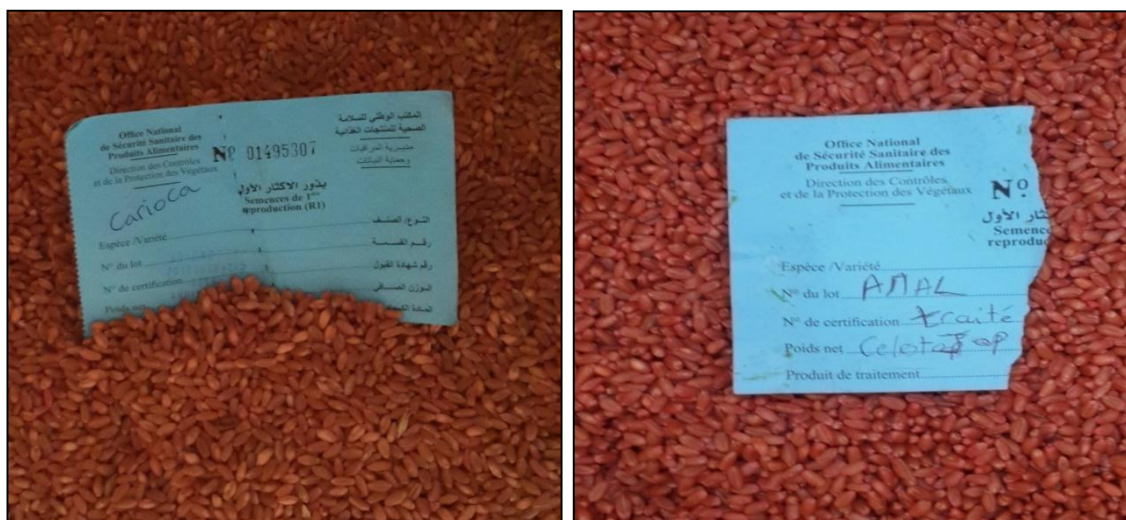 Office National
de Sécurité Sanitaire des
Produits Alimentaires
Direction des Contrôles
et de la Protection des Végétaux
المكتب الوطني للسلامة
الصحية للمنتجات الغذائية
مديرية المراقبات
وحماية النباتات
Nº 01495307
Carioca
بذور الاكثار الأول
Semences de 1ère
reproduction (R1)
Espèce /Variété النوع/ الصنف
N° du lot رقم القسمة
N° de certification رقم شهادة القبول
Poids net الوزن الصافي
المادة
Office National
de Sécurité Sanitaire des
Produits Alimentaires
Direction des Contrôles
et de la Protection des Végétaux
Nº
ثار الأول
Semence
reprodu
Espèce /Variété
N° du lot AMAL
N° de certification traité
Poids net Celest op
Produit de traitement